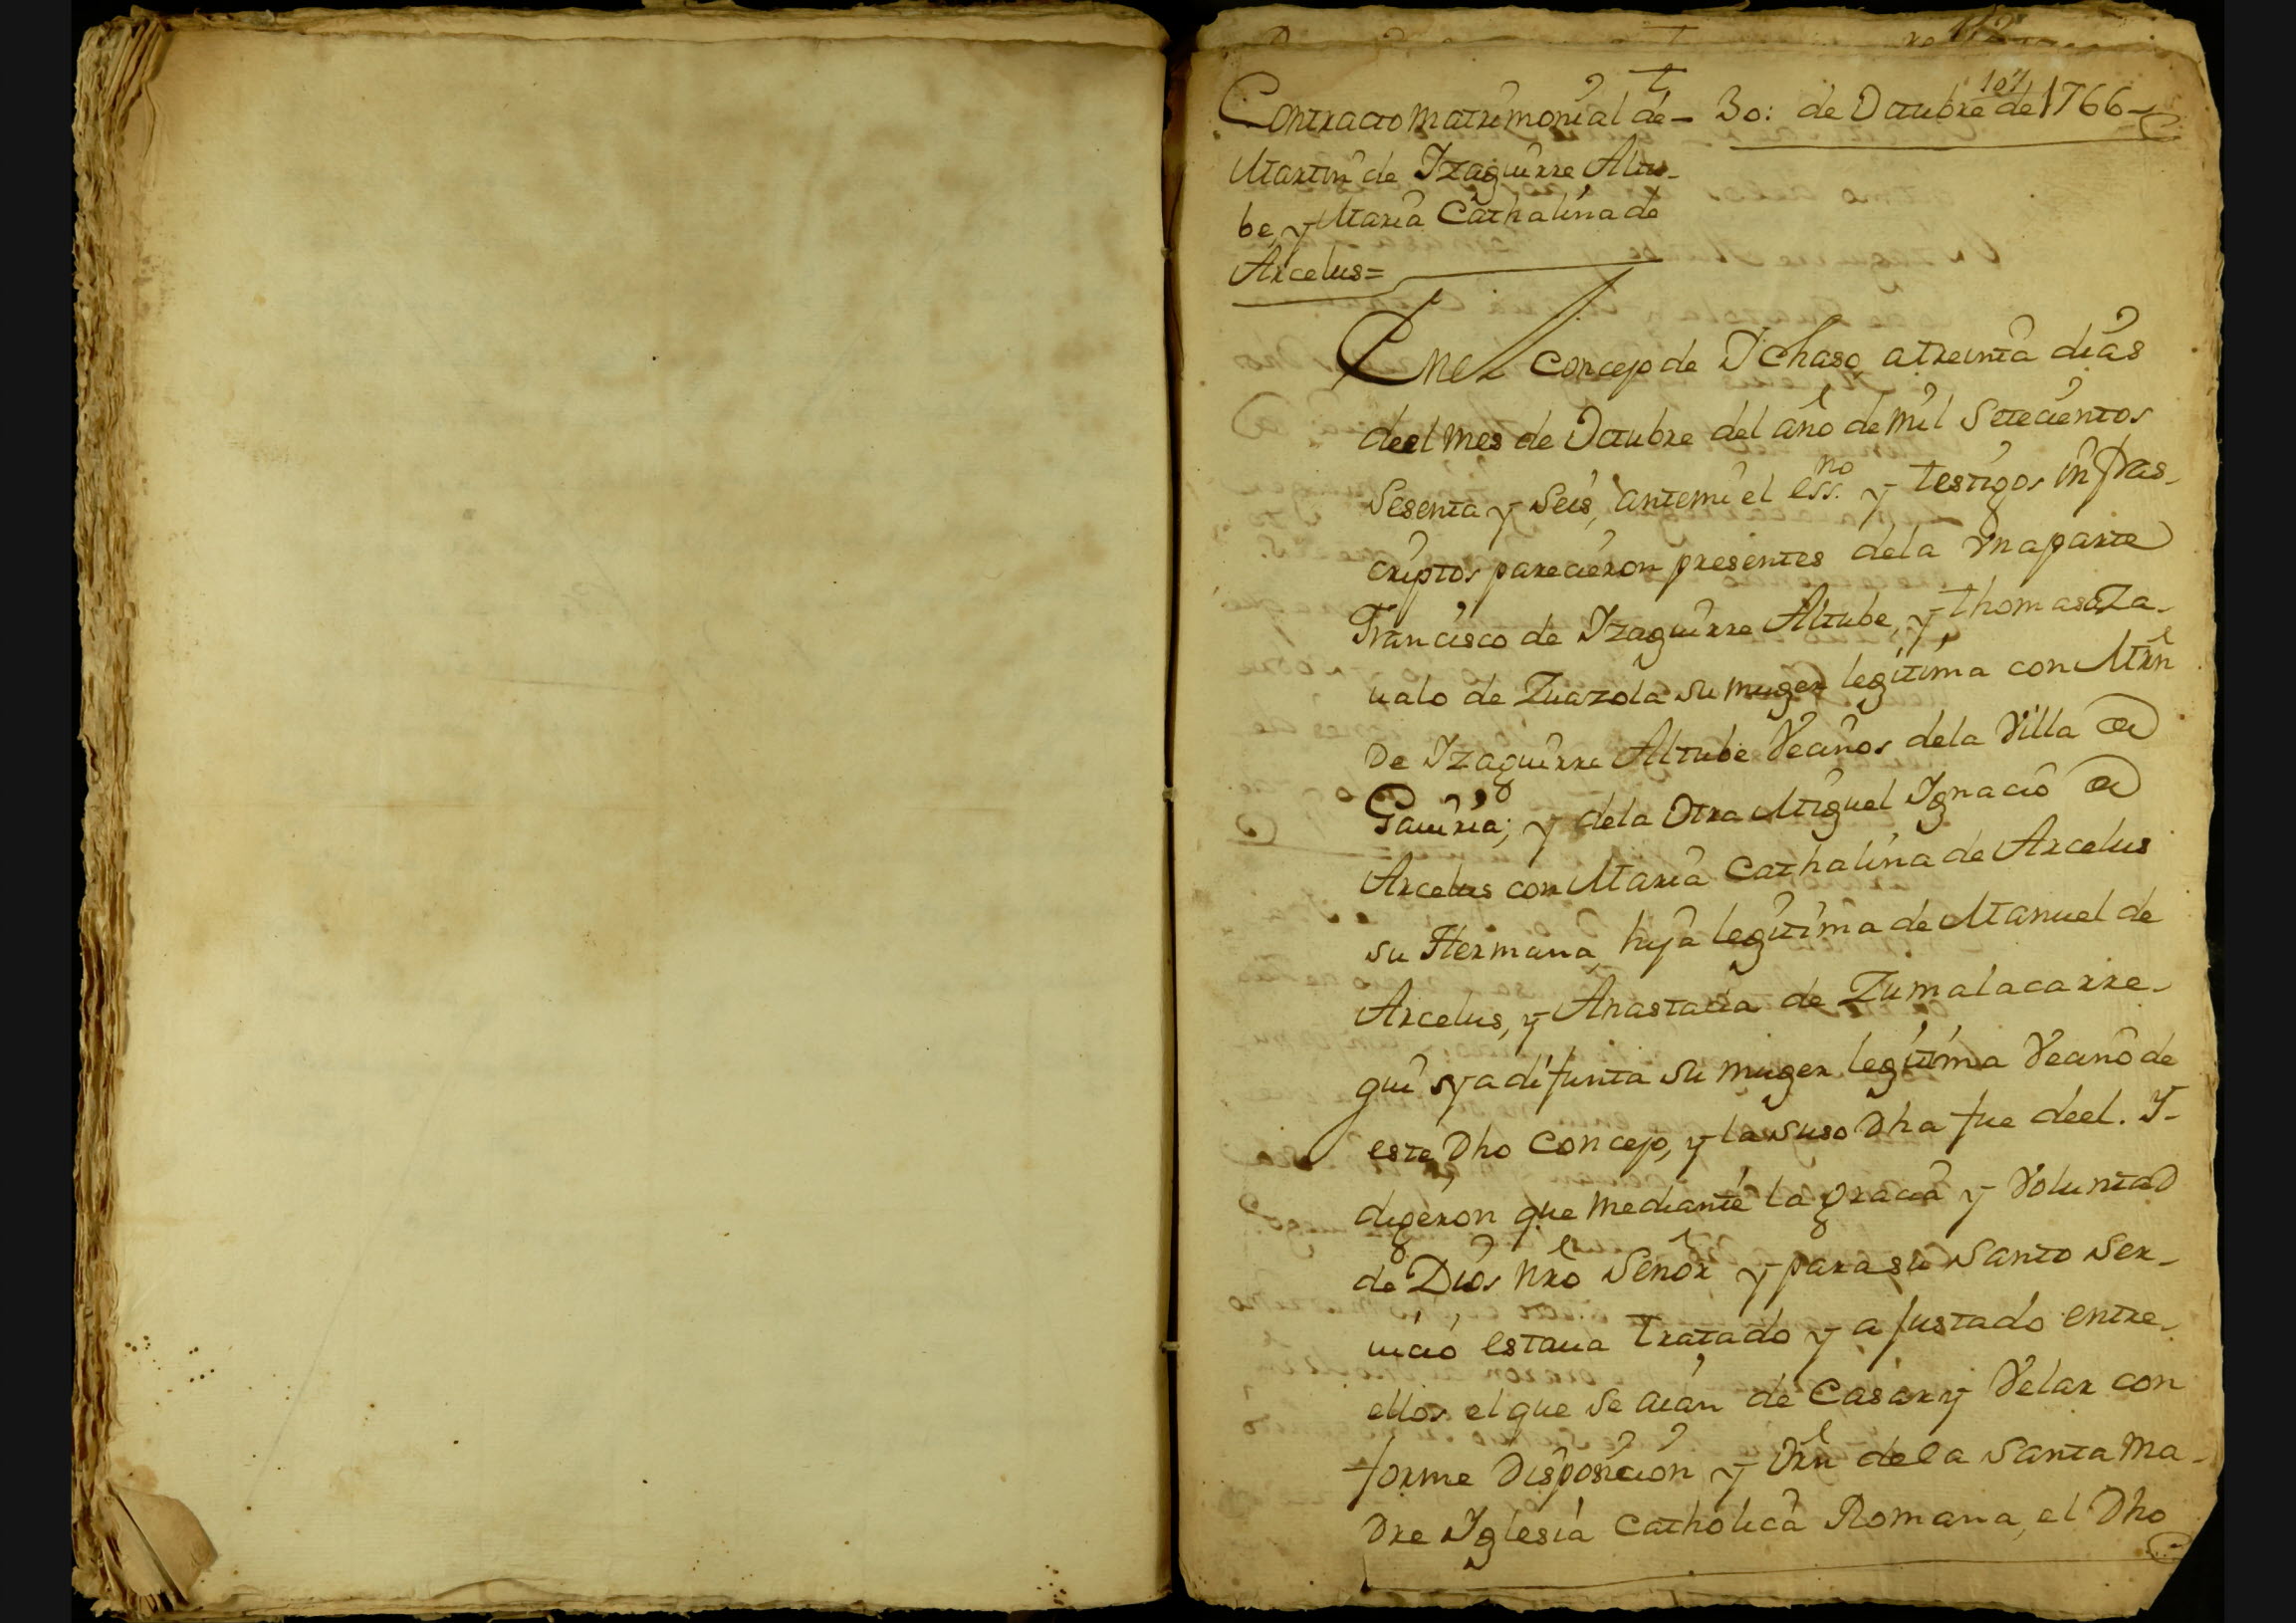 112
107
Contracto matrimonial de - 30: de Octubre de 1766 -
Martin de Yzaguirre Altu-
be, y Maria Cathalina de
Arcelus =
En el Concejo de Ychaso, a treinta dias
de el mes de Octubre del año de mil Setecientos
Sesenta y Seis, antemi el essno. y testigos infras-
criptos parecieron presentes dela Vna parte
Francisco de Yzaguirre Altube, y Thomasa Za-
ualo de Zuazola su muger legitima con Mrn
de Yzaguirre Altube Vecinos dela Villa de
Gauiria; y dela Otra Miguel Ygnacio de
Arcelus con Maria Cathalina de Arcelus
su Hermana, hija legitima de Manuel de
Arcelus, y Anastacia de Zumalacarre-
gui ya difunta su muger legitima Vecino de
este Dho Concejo, y la suso Dha fue de el. Y-
digeron que mediante la gracia y Voluntad
de Dios nro Señor y para su Santo Ser-
uicio estaua tratado y ajustado entre
ellos el que se aian de Casar y Velar con
forme Disposicion y Orn de la Santa Ma-
dre Yglesia Catholica Romana, el Dho